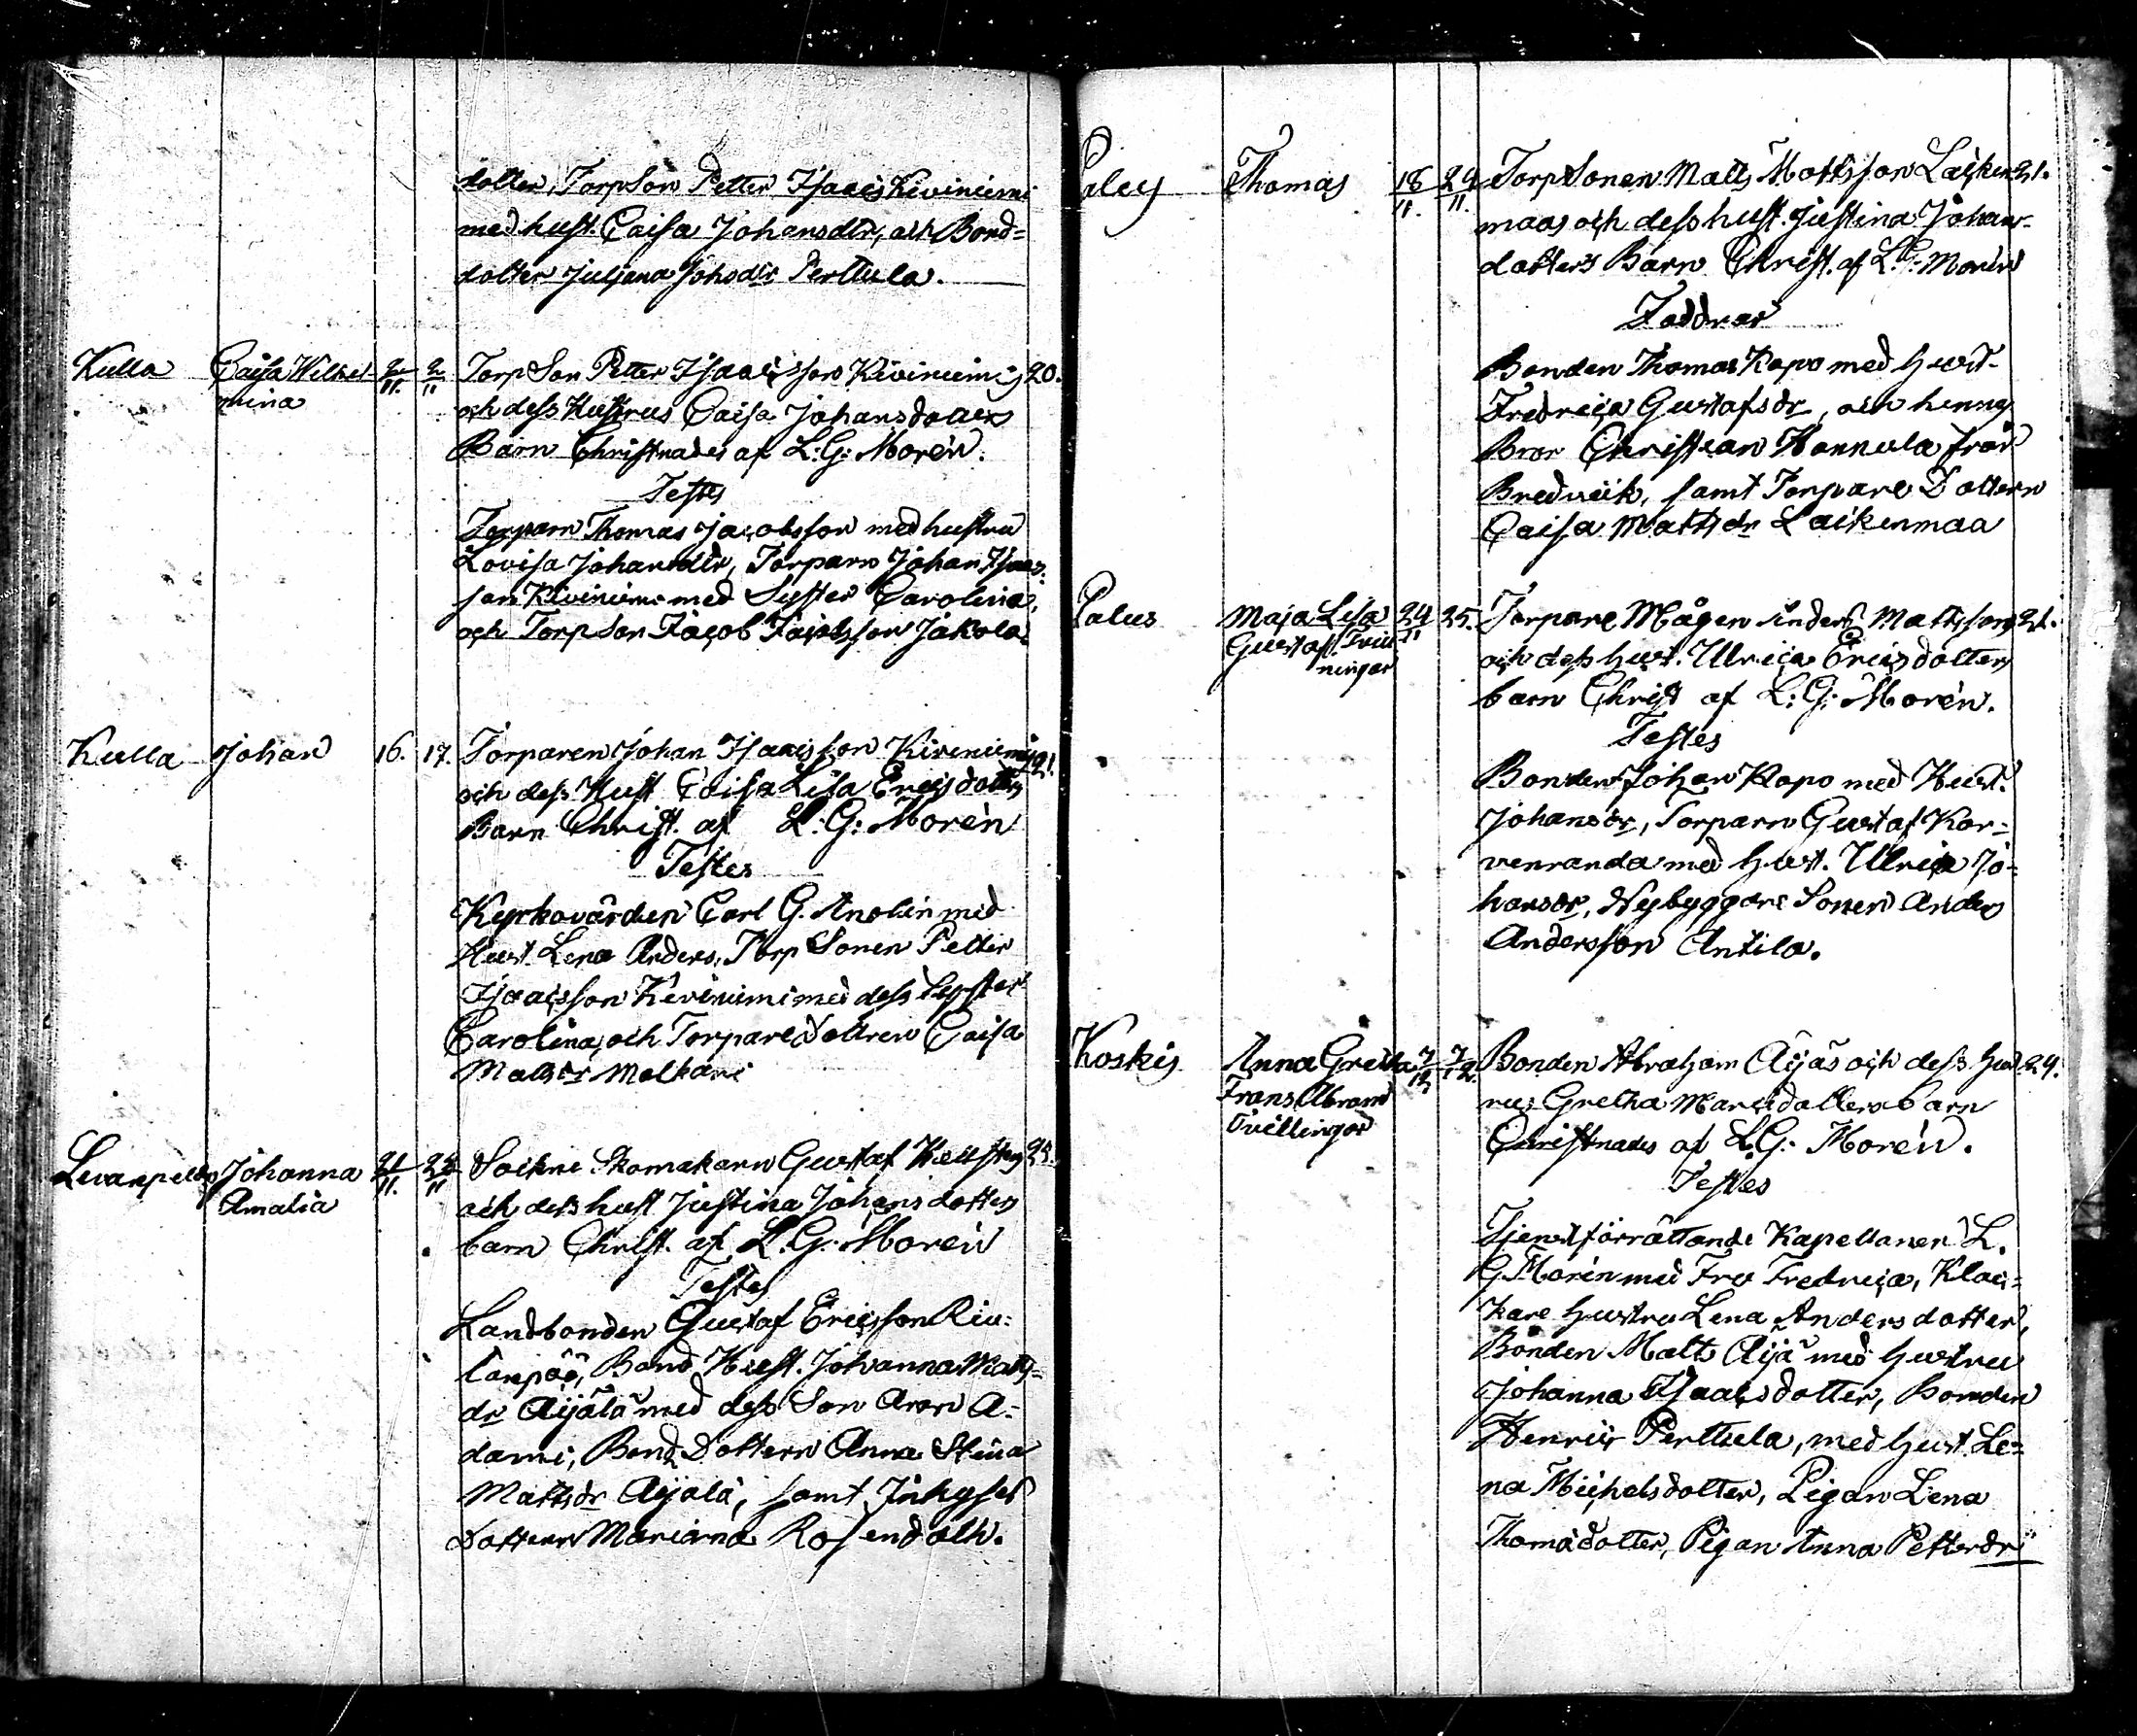 dotter, TorpSon Petter Isaacs Kiviniemi
med hust. Caisa Johansdtr, och Bond=
dotter Juljana Johsdtr Perttula.
Kulla Caisa Wilhel 2/11. 2/11 TorpSon Petter Isaacsson Kiviniemis 20.
mina och dess Hustrus Caisa Johansdotters
Barn Christnades af L: G: Morén.
Testes
Torparn Thomas Jacobsson med hustru
Lovisa Johansdtr, Torparn Johan Isaacs
son Kiviniemi med Syster Carolina,
och TorpSon Jacob Jacobsson Jakola.
Kulla Johan 16. 17. Torparen Johan Isaacsson Kiviniemis 21.
och dess Hust Caisa Lisa Ericsdotters
Barn Christ. af L: G: Morén
Testes
Kyrkovärden Carl G. Anolin med
Hust. Lena Anders, TorpSonen Petter
Isaacsson Kiviniemi med dess Syster
Carolina, och Torparedottren Caisa
Mattsdr Malkani
Levanpelto Johanna 21/11. 24/11 Sockne Skomakarn Gustaf 23.
Amalia och dess hust Justina Johansdotters
barn Christ. af L. G. Morén
Testes
Landbonden Gustaf Ericsson Riu=
tanpää, Bond Hust. Johanna Matts=
dr Äijälä med dess Son Aron A=
dami, Bond Dottern Anna Stina
Mattsdr Äijälä, samt Inhyses
Dottern Mariana Rosendahl.
Palus Thomas 18/11. 24/11. TorpSonen Matts Mattsson Laiken 21.
maas och dess hust. Justina Johans-
dotters Barn Christ. af L. G: Morén
Faddrar
Bonden Thomas Kapo med Hust.
Fredrica Gustafsdr, och hennes
Bror Christian Hannula från
Bredvick, samt Torpare Dottern
Caisa Mattsdr Laikenmaa
Palus Maja Lisa 24/11 25. Torpare Mågen Anders Mattssons 21.
Gustaf. Tvil
ningar och dess hust. Ulrica Ericsdotters
barn Christ af L: G: Morén.
Testes
Bonden Johan Kapo med Hust.
Johansdr, Torparn Gustaf Kor=
venranda med hust. Ulrica Jo=
hansdr, Nybyggare Sonen Anders
Andersson Antila.
Koskis Anna Gretha 7/12 7/12. Bonden Abraham Äijäs och dess hust 24.
Frans Abram
Tvillingar rus Gretha Marcidotters barn
Christnades af L. G: Morén.
Testes
Tjenstförrättande Kapellanen L.
G. Morén med Fru Fredrica, Kloc=
kare hustru Lena Andersdotter,
Bonden Matts Äijä med hustru
Johanna Isaacsdotter, Bonden
Henric Perttula, med hust. Le=
na Michelsdotter, Pigan Lena
Thomädotter, Pigan Anna Pettersdr